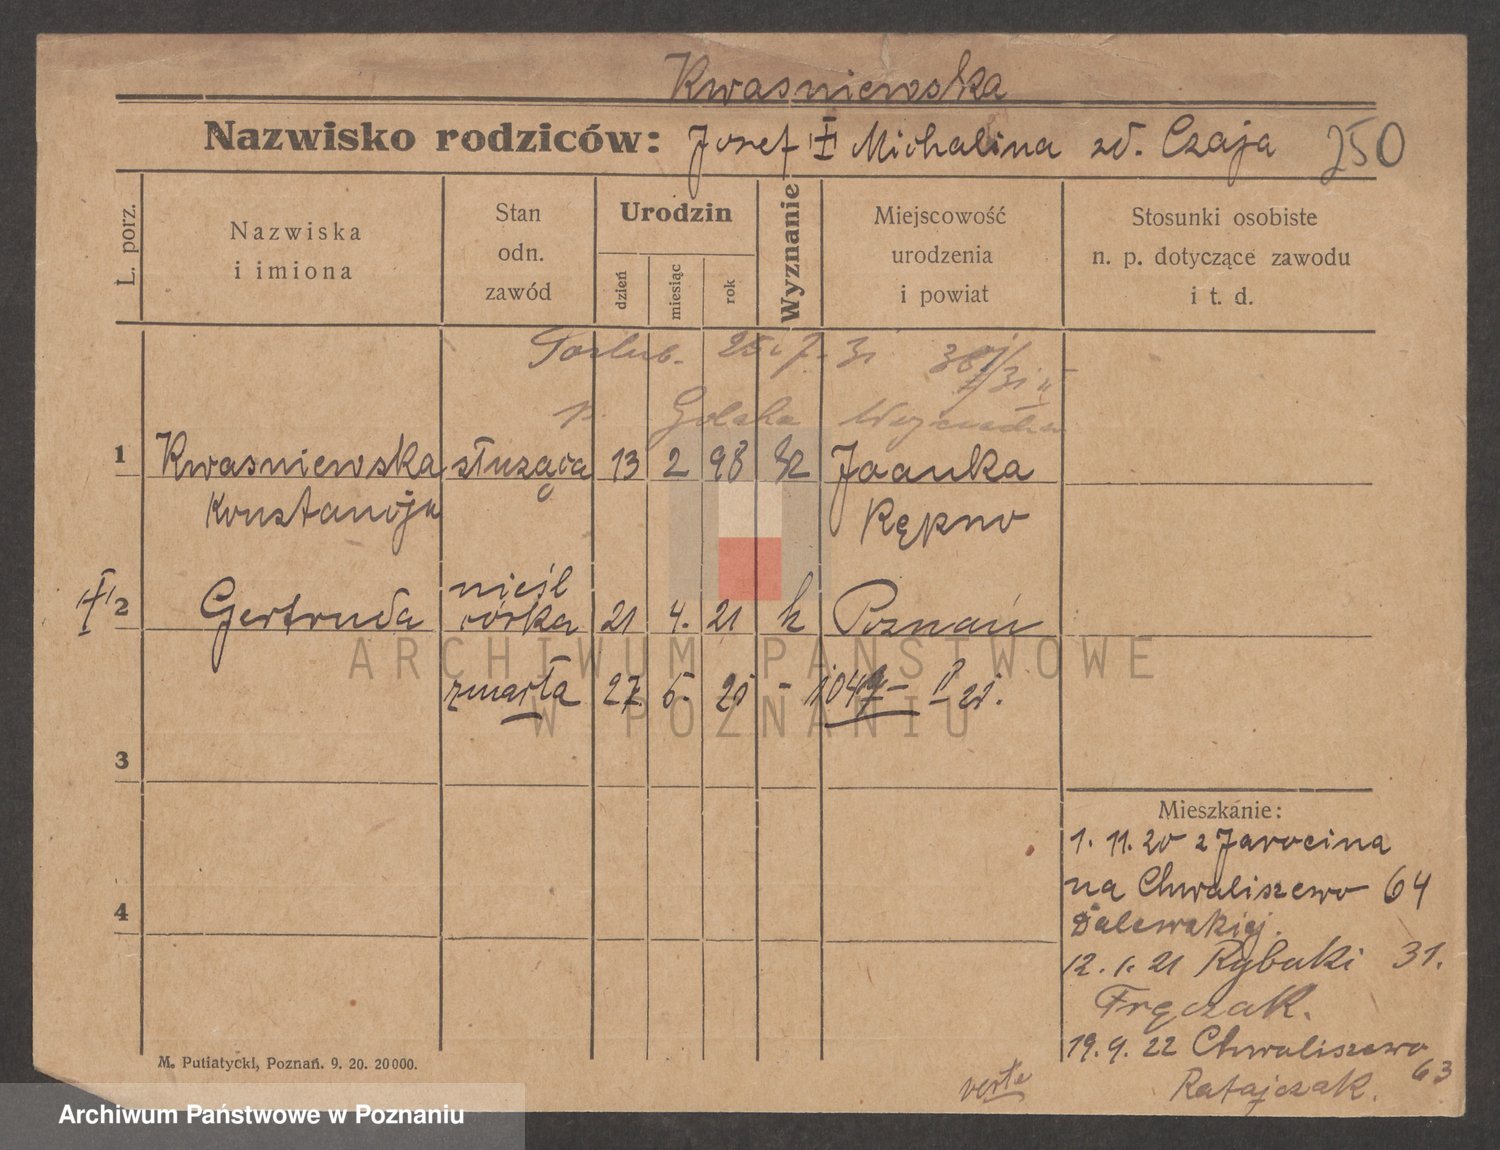 Kwasniewska
Nazwisko rodziców: Jozef Michalina zd. Czaja 250
L. porz.
Nazwiska
i imiona
Stan
odn.
zawód
Urodzin
dzień
miesiąc
rok
Wyznanie
Miejscowość
urodzenia
i powiat
Stosunki osobiste
n. p. dotyczące zawodu
i t. d.
Poslub. 25. 7. 31
Golska
1 Kwasniewska służąca 13 2 98 Janka
Konstancja Kępno
nieśl
2 Gertruda córka 21 4. 21 k Poznań
zmarła 27. 5. 21 - 1049 - 21.
3
4
Mieszkanie:
1. 11. 20 z Jarocina
na Chwaliszewo 64
Dalewskiej.
12. 1. 21 Rybaki 31.
Fręczak.
19. 9. 22 Chwaliszewo
63
Ratajczak.
verte
M. Putiatycki, Poznań. 9. 20. 20000.
ARCHIWUM PAŃSTWOWE
W POZNANIU
Archiwum Państwowe w Poznaniu